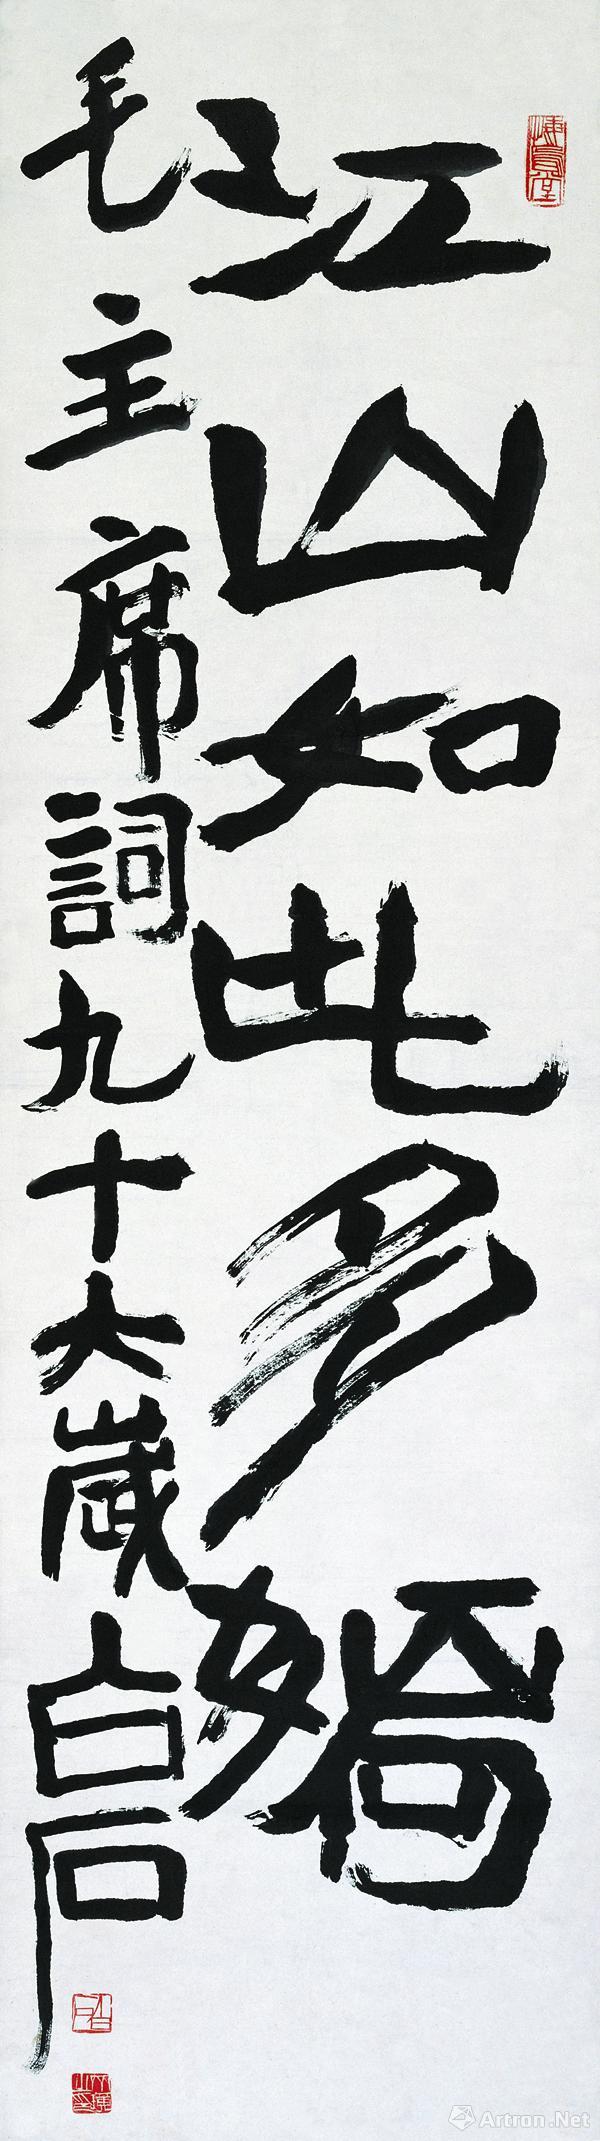 江山如此多娇
毛主席詞九十六歲白石
Artron.Net